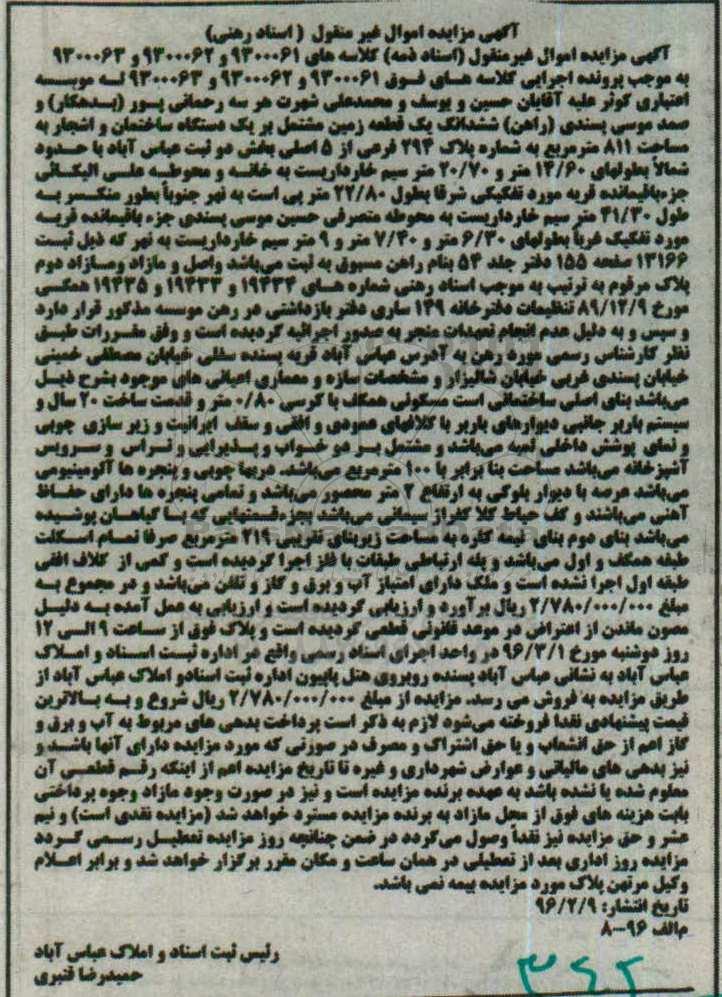 آگهی مزایده اموال غیر منقول ( اسناد رهنی)
آگهی مزایده اموال غیرمنقول (اسناد ذمه) کلاسه های ۹۳۰۰۰۶۱ و ۹۳۰۰۰۶۲ و ۹۳۰۰۰۶۳
به موجب پرونده اجرایی کلاسه های فوق ۹۳۰۰۰۶۱ و ۹۳۰۰۰۶۲ و ۹۳۰۰۰۶۳ له موسسه
اعتباری کوثر علیه آقایان حسین و یوسف و محمدعلی شهرت هر سه رحمانی پور (بدهکار) و
صمد موسی پسندی (راهن) ششدانگ یک قطعه زمین مشتمل بر یک دستگاه ساختمان و اشجار به
مساحت ۸۱۱ مترمربع به شماره پلاک ۲۹۴ فرعی از ۵ اصلی بخش دو ثبت عباس آباد با حدود
شمالا بطولهای ۱۴/۶۰ متر و ۲۰/۷۰ متر سیم خارداریست به خانه و محوطه علی الیکائی
جزءباقیمانده قریه مورد تفکیکی شرقا بطول ۲۲/۸۰ متر پی است به نهر جنوباً بطور منکسر به
طول ۴۱/۳۰ متر سیم خارداریست به محوطه متصرفی حسین موسی پسندی جزء باقیمانده قریه
مورد تفکیک غرباً بطولهای ۶/۳۰ متر و ۷/۴۰ متر و ۹ متر سیم خارداریست به نهر که ذیل ثبت
۱۳۱۶۶ صفحه ۱۵۵ دفتر جلد ۵۴ بنام راهن مسبوق به ثبت می‌باشد واصل و مازاد ومازاد دوم
پلاک مرقوم به ترتیب به موجب اسناد رهنی شماره های ۱۹۴۳۴ و ۱۹۴۳۳ و ۱۹۴۳۵ همگی
مورخ ۸۹/۱۲/۹ تنظیمات دفترخانه ۱۴۹ ساری دفتر بازداشتی در رهن موسسه مذکور قرار دارد
و سپس و به دلیل عدم انجام تعهدات منجر به صدور اجرائیه گردیده است و وفق مقررات طبق
نظر کارشناس رسمی مورد رهن به آدرس عباس آباد قریه پسنده سفلی خیابان مصطفی خمینی
خیابان پسندی غربی خیابان شالیزار و مشخصات سازه و معماری اعیانی های موجود بشرح ذیل
می‌باشد بنای اصلی ساختمانی است مسکونی همکف با کرسی ۰/۸۰ متر و قدمت ساخت ۲۰ سال و
سیستم باربر جانبی دیوارهای باربر با کلافهای عمودی و افقی و سقف ایرانیت و زیر سازی چوبی
و نمای پوشش داخلی لمبه می‌باشد و مشتمل بر دو خواب و پذیرایی و تراس و سرویس
آشپزخانه می‌باشد مساحت بنا برابر با ۱۰۰ مترمربع می‌باشد. دربها چوبی و پنجره ها آلومینیومی
می‌باشد عرصه با دیوار بلوکی به ارتفاع ۲ متر محصور می‌باشد و تمامی پنجره ها دارای حفاظ
آهنی می‌باشند و کف حیاط کلا کفراژ سیمانی می‌باشد بجزءقسمتهایی که با گیاهان پوشیده
می‌باشد بنای دوم بنای نیمه کاره به مساحت زیربنای تقریبی ۲۱۹ مترمربع صرفا تمام اسکلت
طبقه همکف و اول می‌باشد و پله ارتباطی طبقات با فلز اجرا گردیده است و کمی از کلاف افقی
طبقه اول اجرا نشده است و ملک دارای امتیاز آب و برق و گاز و تلفن می‌باشد و در مجموع به
مبلغ ۲/۷۸۰/۰۰۰/۰۰۰ ریال برآورد و ارزیابی گردیده است و ارزیابی به عمل آمده به دلیل
مصون ماندن از اعتراض در موعد قانونی قطعی گردیده است و پلاک فوق از ساعت ۹ الی ۱۲
روز دوشنبه مورخ ۹۶/۳/۱ در واحد اجرای اسناد رسمی واقع در اداره ثبت اسناد و املاک
عباس آباد به نشانی عباس آباد پسنده روبروی هتل پاپیون اداره ثبت اسنادو املاک عباس آباد از
طریق مزایده به فروش می رسد. مزایده از مبلغ ۲/۷۸۰/۰۰۰/۰۰۰ ریال شروع و به بالاترین
قیمت پیشنهادی نقدا فروخته می‌شود لازم به ذکر است پرداخت بدهی های مربوط به آب و برق و
گاز اعم از حق انشعاب و یا حق اشتراک و مصرف در صورتی که مورد مزایده دارای آنها باشد و
نیز بدهی های مالیاتی و عوارض شهرداری و غیره تا تاریخ مزایده اعم از اینکه رقم قطعی آن
معلوم شده یا نشده باشد به عهده برنده مزایده است و نیز در صورت وجود مازاد وجوه پرداختی
بابت هزینه های فوق از محل مازاد به برنده مزایده مسترد خواهد شد (مزایده نقدی است) و نیم
عشر و حق مزایده نیز نقداً وصول می‌گردد در ضمن چنانچه روز مزایده تعطیل رسمی گردد
مزایده روز اداری بعد از تعطیلی در همان ساعت و مکان مقرر برگزار خواهد شد و برابر اعلام
وکیل مرتهن پلاک مورد مزایده بیمه نمی باشد.
تاریخ انتشار: ۹۶/۲/۹
م/الف ۹۶-۸
رئیس ثبت اسناد و املاک عباس آباد
حمیدرضا قنبری
۳۶۲